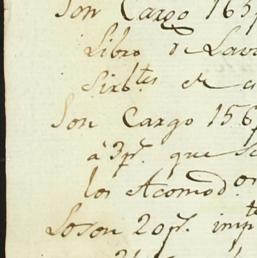 Son Cargo 165
Libro de Lava
Sirb.tes de a
Son Cargo 156
à 3p.s que se
los Acomod.os
Loson 20p.s imp.te